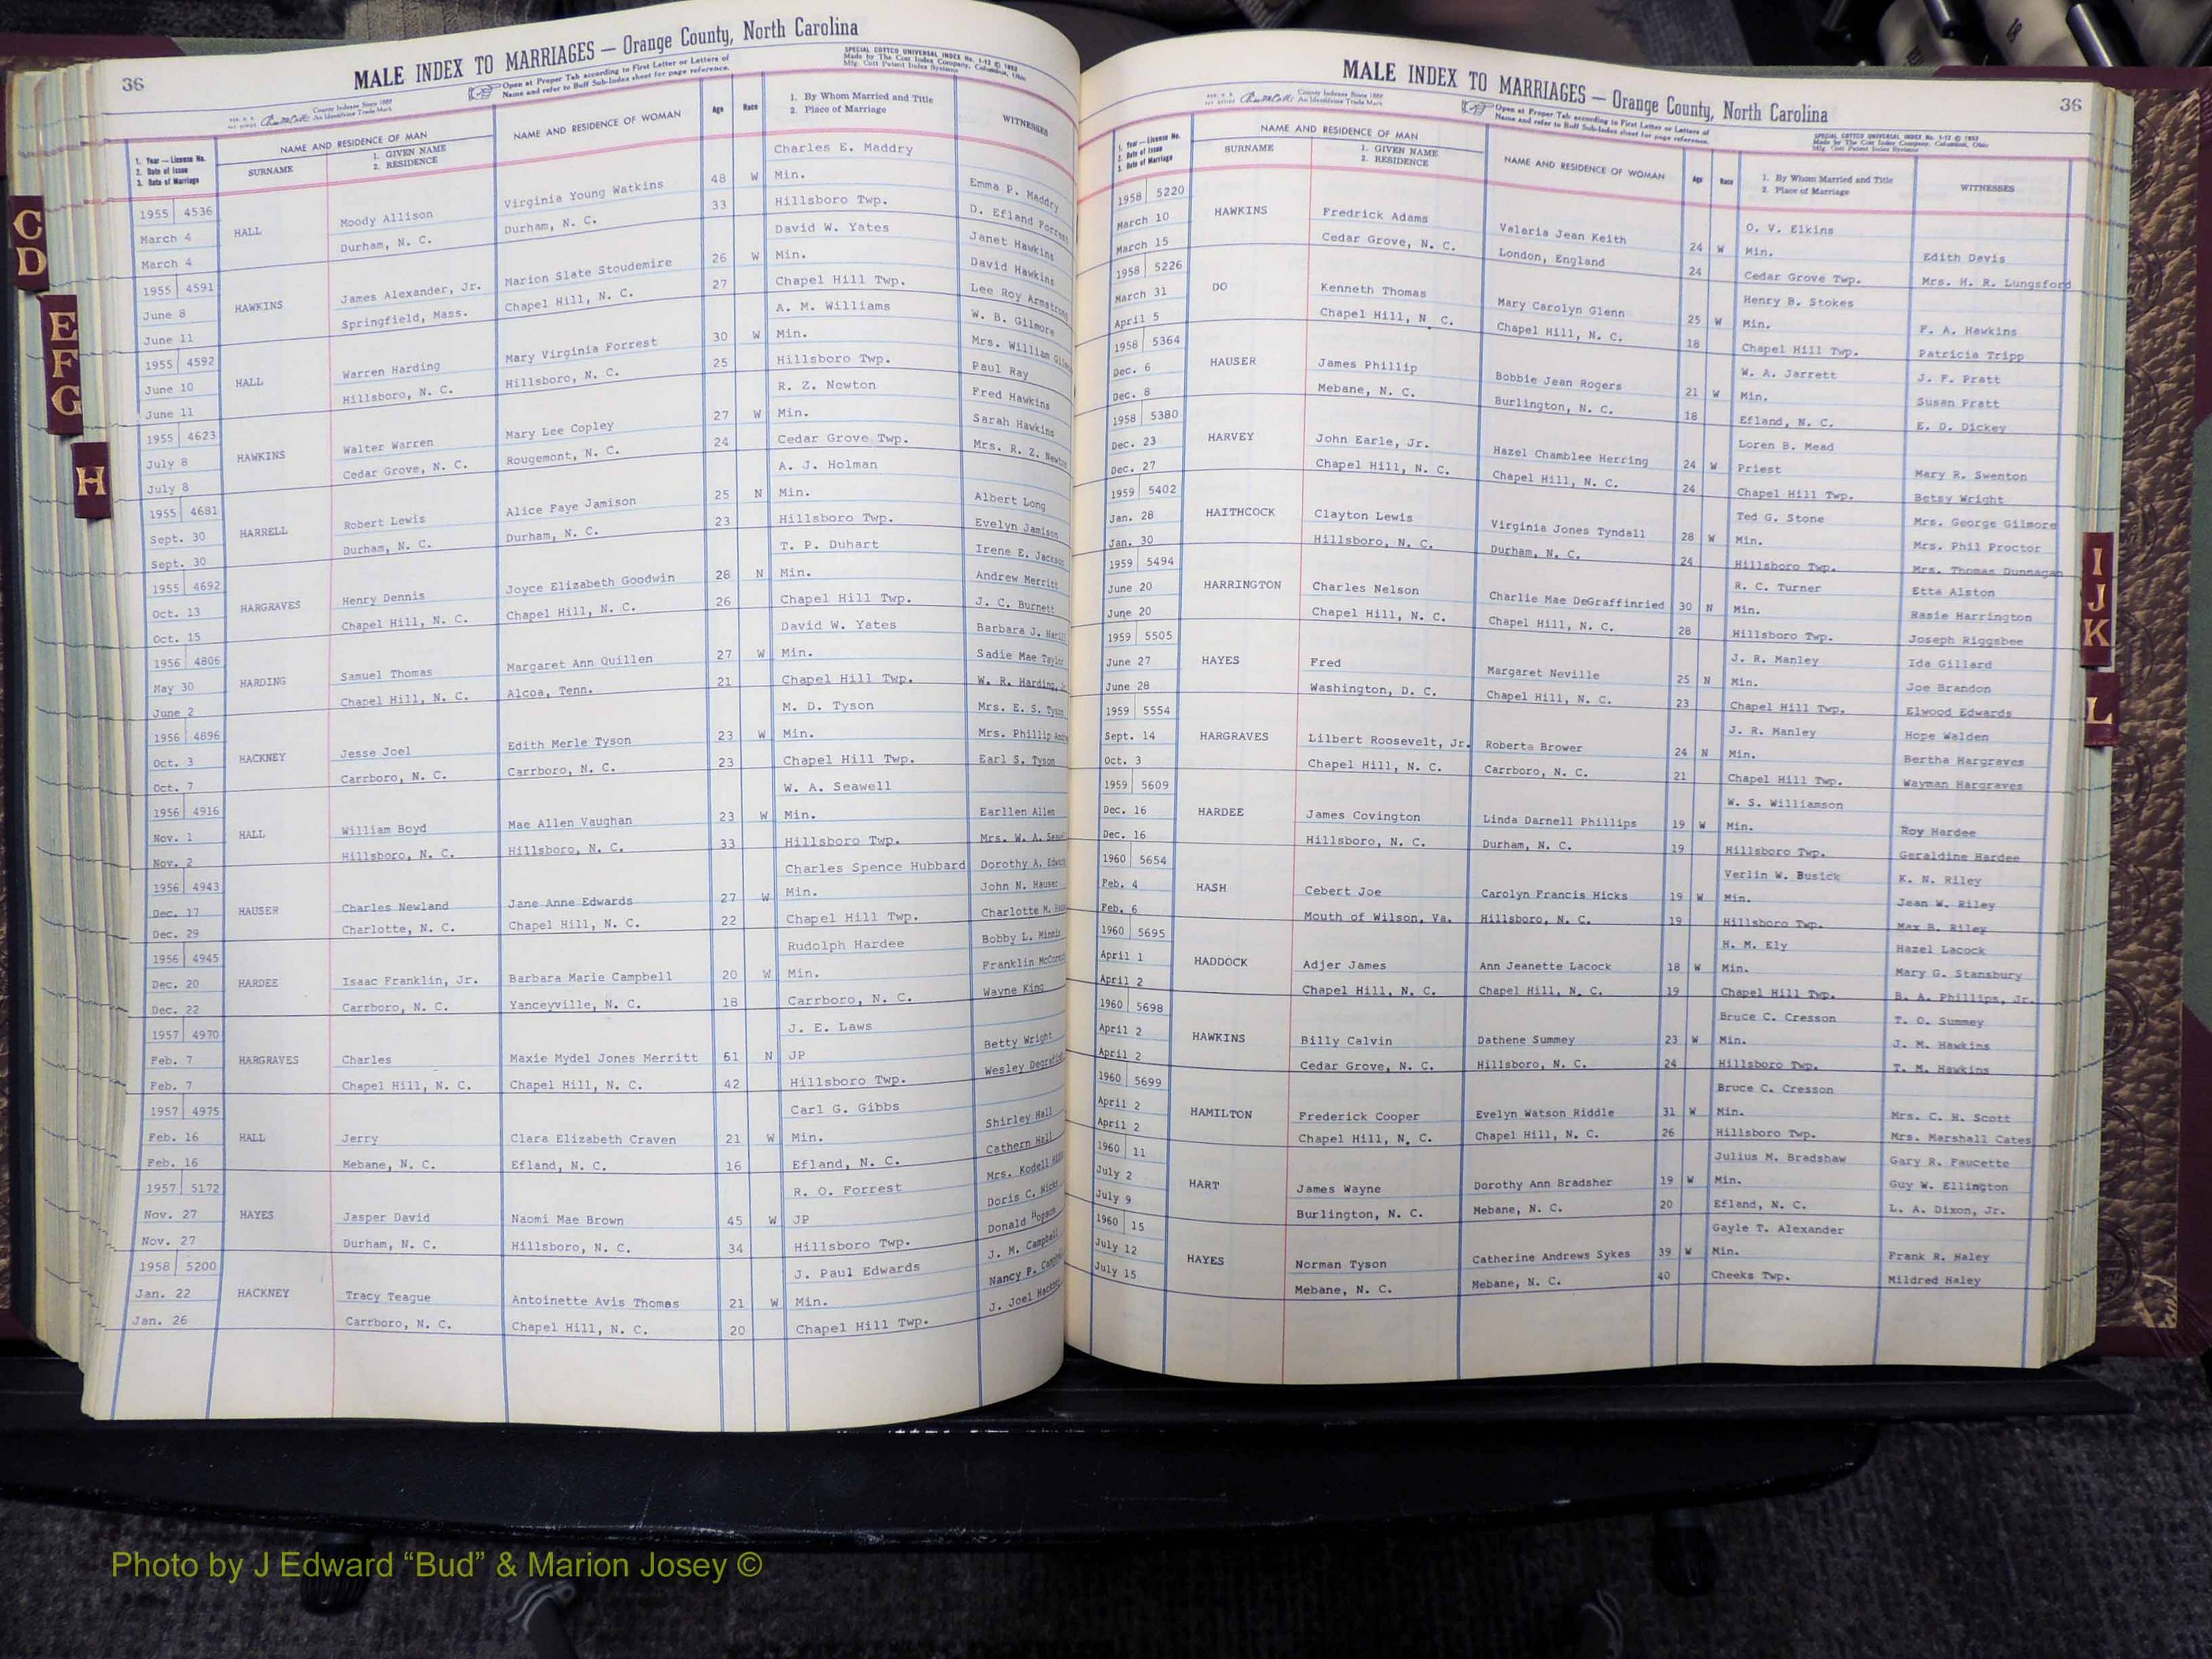 36
MALE INDEX TO MARRIAGES — Orange County, North Carolina
Open at Proper Tab according to First Letter or Letters of
Name and refer to Buff Sub-Index sheet for page reference.
SPECIAL COTTCO UNIVERSAL INDEX No. 1-12 © 1953
Made by The Cott Index Company, Columbus, Ohio
Mfg. Cott Patent Index Systems
County Indexes Since 1888
An Identifying Trade Mark
1. Year — License No.
2. Date of Issue
3. Date of Marriage
NAME AND RESIDENCE OF MAN
SURNAME
1. GIVEN NAME
2. RESIDENCE
NAME AND RESIDENCE OF WOMAN
Age
Race
1. By Whom Married and Title
2. Place of Marriage
WITNESSES
Charles E. Maddry
1955 4536 Moody Allison Virginia Young Watkins 48 W Min. Emma P. Maddry
March 4 HALL Durham, N. C. Durham, N. C. 33 Hillsboro Twp. D. Efland Forrest
March 4
David W. Yates Janet Hawkins
1955 4591 James Alexander, Jr. Marion Slate Stoudemire 26 W Min. David Hawkins
June 8 HAWKINS Springfield, Mass. Chapel Hill, N. C. 27 Chapel Hill Twp. Lee Roy Armstrong
June 11
A. M. Williams W. B. Gilmore
1955 4592 Warren Harding Mary Virginia Forrest 30 W Min. Mrs. William
June 10 HALL Hillsboro, N. C. Hillsboro, N. C. 25 Hillsboro Twp. Paul Ray
June 11
R. Z. Newton Fred Hawkins
1955 4623 Walter Warren Mary Lee Copley 27 W Min. Sarah Hawkins
July 8 HAWKINS Cedar Grove, N. C. Rougemont, N. C. 24 Cedar Grove Twp. Mrs. R. Z. Newton
July 8
A. J. Holman
1955 4681 Robert Lewis Alice Faye Jamison 25 N Min. Albert Long
Sept. 30 HARRELL Durham, N. C. Durham, N. C. 23 Hillsboro Twp. Evelyn Jamison
Sept. 30
T. P. Duhart Irene E. Jackson
1955 4692 Henry Dennis Joyce Elizabeth Goodwin 28 N Min. Andrew Merritt
Oct. 13 HARGRAVES Chapel Hill, N. C. Chapel Hill, N. C. 26 Chapel Hill Twp. J. C. Burnett
Oct. 15
David W. Yates Barbara J.
1956 4806 Samuel Thomas Margaret Ann Quillen 27 W Min. Sadie Mae Taylor
May 30 HARDING Chapel Hill, N. C. Alcoa, Tenn. 21 Chapel Hill Twp. W. R. Harding,
June 2
M. D. Tyson Mrs. E. S. Tyson
1956 4896 Jesse Joel Edith Merle Tyson 23 W Min. Mrs. Phillip
Oct. 3 HACKNEY Carrboro, N. C. Carrboro, N. C. 23 Chapel Hill Twp. Earl S. Tyson
Oct. 7
W. A. Seawell
1956 4916 William Boyd Mae Allen Vaughan 23 W Min. Earllen Allen
Nov. 1 HALL Hillsboro, N. C. Hillsboro, N. C. 33 Hillsboro Twp. Mrs. W. A.
Nov. 2
Charles Spence Hubbard Dorothy A.
1956 4943 Charles Newland Jane Anne Edwards 27 W Min. John N. Hauser
Dec. 17 HAUSER Charlotte, N. C. Chapel Hill, N. C. 22 Chapel Hill Twp. Charlotte M.
Dec. 29
Rudolph Hardee Bobby L. Minnis
1956 4945 Isaac Franklin, Jr. Barbara Marie Campbell 20 W Min. Franklin
Dec. 20 HARDEE Carrboro, N. C. Yanceyville, N. C. 18 Carrboro, N. C. Wayne King
Dec. 22
J. E. Laws
1957 4970 Charles Maxie Mydel Jones Merritt 61 N JP Betty Wright
Feb. 7 HARGRAVES Chapel Hill, N. C. Chapel Hill, N. C. 42 Hillsboro Twp. Wesley
Feb. 7
Carl G. Gibbs
1957 4975 Jerry Clara Elizabeth Craven 21 W Min. Shirley Hall
Feb. 16 HALL Mebane, N. C. Efland, N. C. 16 Efland, N. C. Cathern Hall
Feb. 16
R. O. Forrest Mrs. Kodell
1957 5172 Jasper David Naomi Mae Brown 45 W JP Doris C. Hicks
Nov. 27 HAYES Durham, N. C. Hillsboro, N. C. 34 Hillsboro Twp. Donald Hopson
Nov. 27
J. Paul Edwards J. M. Campbell
1958 5200 Tracy Teague Antoinette Avis Thomas 21 W Min. Nancy P.
Jan. 22 HACKNEY Carrboro, N. C. Chapel Hill, N. C. 20 Chapel Hill Twp. J. Joel Hackney
Jan. 26
MALE INDEX TO MARRIAGES — Orange County, North Carolina
36
County Indexes Since 1888
An Identifying Trade Mark
Open at Proper Tab according to First Letter or Letters of
Name and refer to Buff Sub-Index sheet for page reference.
SPECIAL COTTCO UNIVERSAL INDEX No. 1-12 © 1953
Made by The Cott Index Company, Columbus, Ohio
Mfg. Cott Patent Index Systems
1. Year — License No.
2. Date of Issue
3. Date of Marriage
NAME AND RESIDENCE OF MAN
SURNAME
1. GIVEN NAME
2. RESIDENCE
NAME AND RESIDENCE OF WOMAN
Age
Race
1. By Whom Married and Title
2. Place of Marriage
WITNESSES
1958 5220 O. V. Elkins
March 10 HAWKINS Fredrick Adams Valeria Jean Keith 24 W Min. Edith Davis
March 15 Cedar Grove, N. C. London, England 24 Cedar Grove Twp. Mrs. H. R. Lungsford
1958 5226 Henry B. Stokes
March 31 DO Kenneth Thomas Mary Carolyn Glenn 25 W Min. F. A. Hawkins
April 5 Chapel Hill, N. C. Chapel Hill, N. C. 18 Chapel Hill Twp. Patricia Tripp
1958 5364 W. A. Jarrett J. F. Pratt
Dec. 6 HAUSER James Phillip Bobbie Jean Rogers 21 W Min. Susan Pratt
Dec. 8 Mebane, N. C. Burlington, N. C. 18 Efland, N. C. E. D. Dickey
1958 5380 Loren B. Mead
Dec. 23 HARVEY John Earle, Jr. Hazel Chamblee Herring 24 W Priest Mary R. Swenton
Dec. 27 Chapel Hill, N. C. Chapel Hill, N. C. 24 Chapel Hill Twp. Betsy Wright
1959 5402 Ted G. Stone Mrs. George Gilmore
Jan. 28 HAITHCOCK Clayton Lewis Virginia Jones Tyndall 28 W Min. Mrs. Phil Proctor
Jan. 30 Hillsboro, N. C. Durham, N. C. 24 Hillsboro Twp. Mrs. Thomas Dunnagan
1959 5494 R. C. Turner Etta Alston
June 20 HARRINGTON Charles Nelson Charlie Mae DeGraffinried 30 N Min. Rasie Harrington
June 20 Chapel Hill, N. C. Chapel Hill, N. C. 28 Hillsboro Twp. Joseph Riggsbee
1959 5505 J. R. Manley Ida Gillard
June 27 HAYES Fred Margaret Neville 25 N Min. Joe Brandon
June 28 Washington, D. C. Chapel Hill, N. C. 23 Chapel Hill Twp. Elwood Edwards
1959 5554 J. R. Manley Hope Walden
Sept. 14 HARGRAVES Lilbert Roosevelt, Jr. Roberta Brower 24 N Min. Bertha Hargraves
Oct. 3 Chapel Hill, N. C. Carrboro, N. C. 21 Chapel Hill Twp. Wayman Hargraves
1959 5609 W. S. Williamson
Dec. 16 HARDEE James Covington Linda Darnell Phillips 19 W Min. Roy Hardee
Dec. 16 Hillsboro, N. C. Durham, N. C. 19 Hillsboro Twp. Geraldine Hardee
1960 5654 Verlin W. Busick K. N. Riley
Feb. 4 HASH Cebert Joe Carolyn Francis Hicks 19 W Min. Jean W. Riley
Feb. 6 Mouth of Wilson, Va. Hillsboro, N. C. 19 Hillsboro Twp. Max B. Riley
1960 5695 H. M. Ely Hazel Lacock
April 1 HADDOCK Adjer James Ann Jeanette Lacock 18 W Min. Mary G. Stansbury
April 2 Chapel Hill, N. C. Chapel Hill, N. C. 19 Chapel Hill Twp. B. A. Phillips, Jr.
1960 5698 Bruce C. Cresson T. O. Summey
April 2 HAWKINS Billy Calvin Dathene Summey 23 W Min. J. M. Hawkins
April 2 Cedar Grove, N. C. Hillsboro, N. C. 24 Hillsboro Twp. T. M. Hawkins
1960 5699 Bruce C. Cresson
April 2 HAMILTON Frederick Cooper Evelyn Watson Riddle 31 W Min. Mrs. C. H. Scott
April 2 Chapel Hill, N. C. Chapel Hill, N. C. 26 Hillsboro Twp. Mrs. Marshall Cates
1960 11 Julius M. Bradshaw Gary R. Faucette
July 2 HART James Wayne Dorothy Ann Bradsher 19 W Min. Guy W. Ellington
July 9 Burlington, N. C. Mebane, N. C. 20 Efland, N. C. L. A. Dixon, Jr.
1960 15 Gayle T. Alexander
July 12 HAYES Norman Tyson Catherine Andrews Sykes 39 W Min. Frank R. Haley
July 15 Mebane, N. C. Mebane, N. C. 40 Cheeks Twp. Mildred Haley
C
D
E
F
G
H
I
J
K
L
Photo by J Edward “Bud” & Marion Josey ©